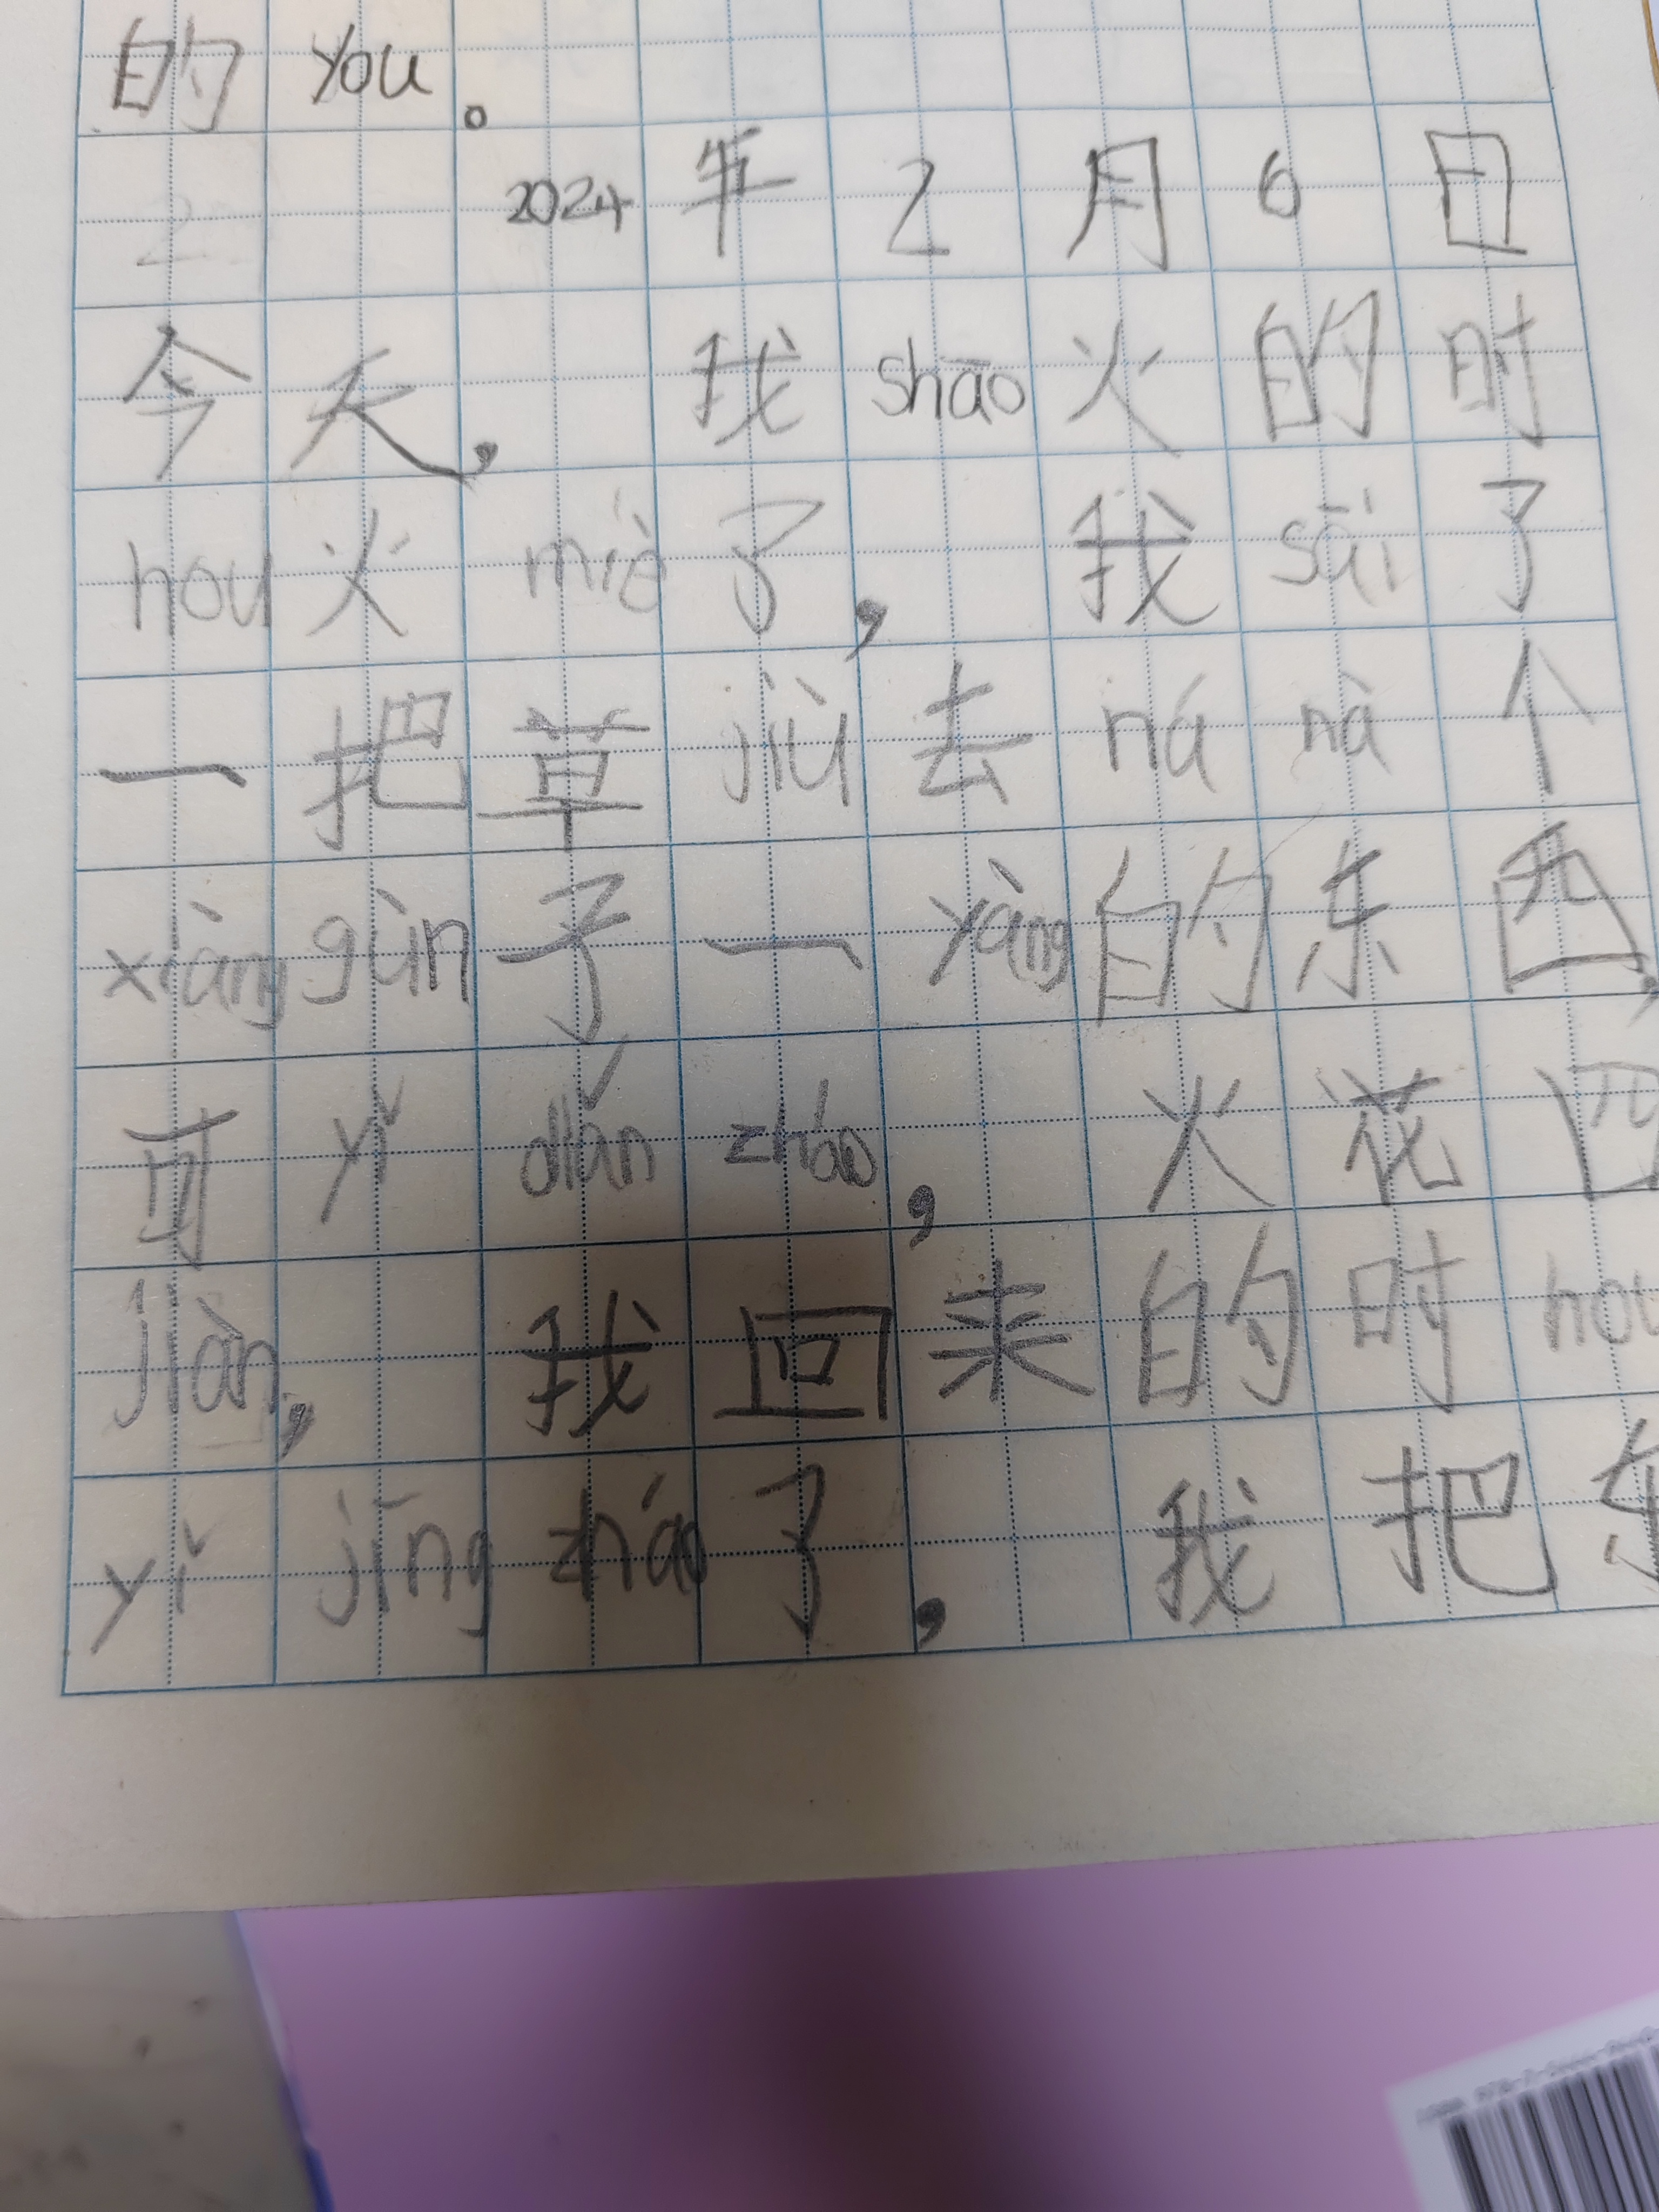 的 you。
2024 年 2 月 6 日
今天， 我 shāo 火的时
hou 火 miè 了， 我 sāi 了
一把草 jiù 去 ná nà 个
xiàng gùn 子一 yàng 的东西，
可 yǐ diǎn zháo， 火花四
jiàn， 我回来的时 hou
yǐ jīng zháo 了， 我把东